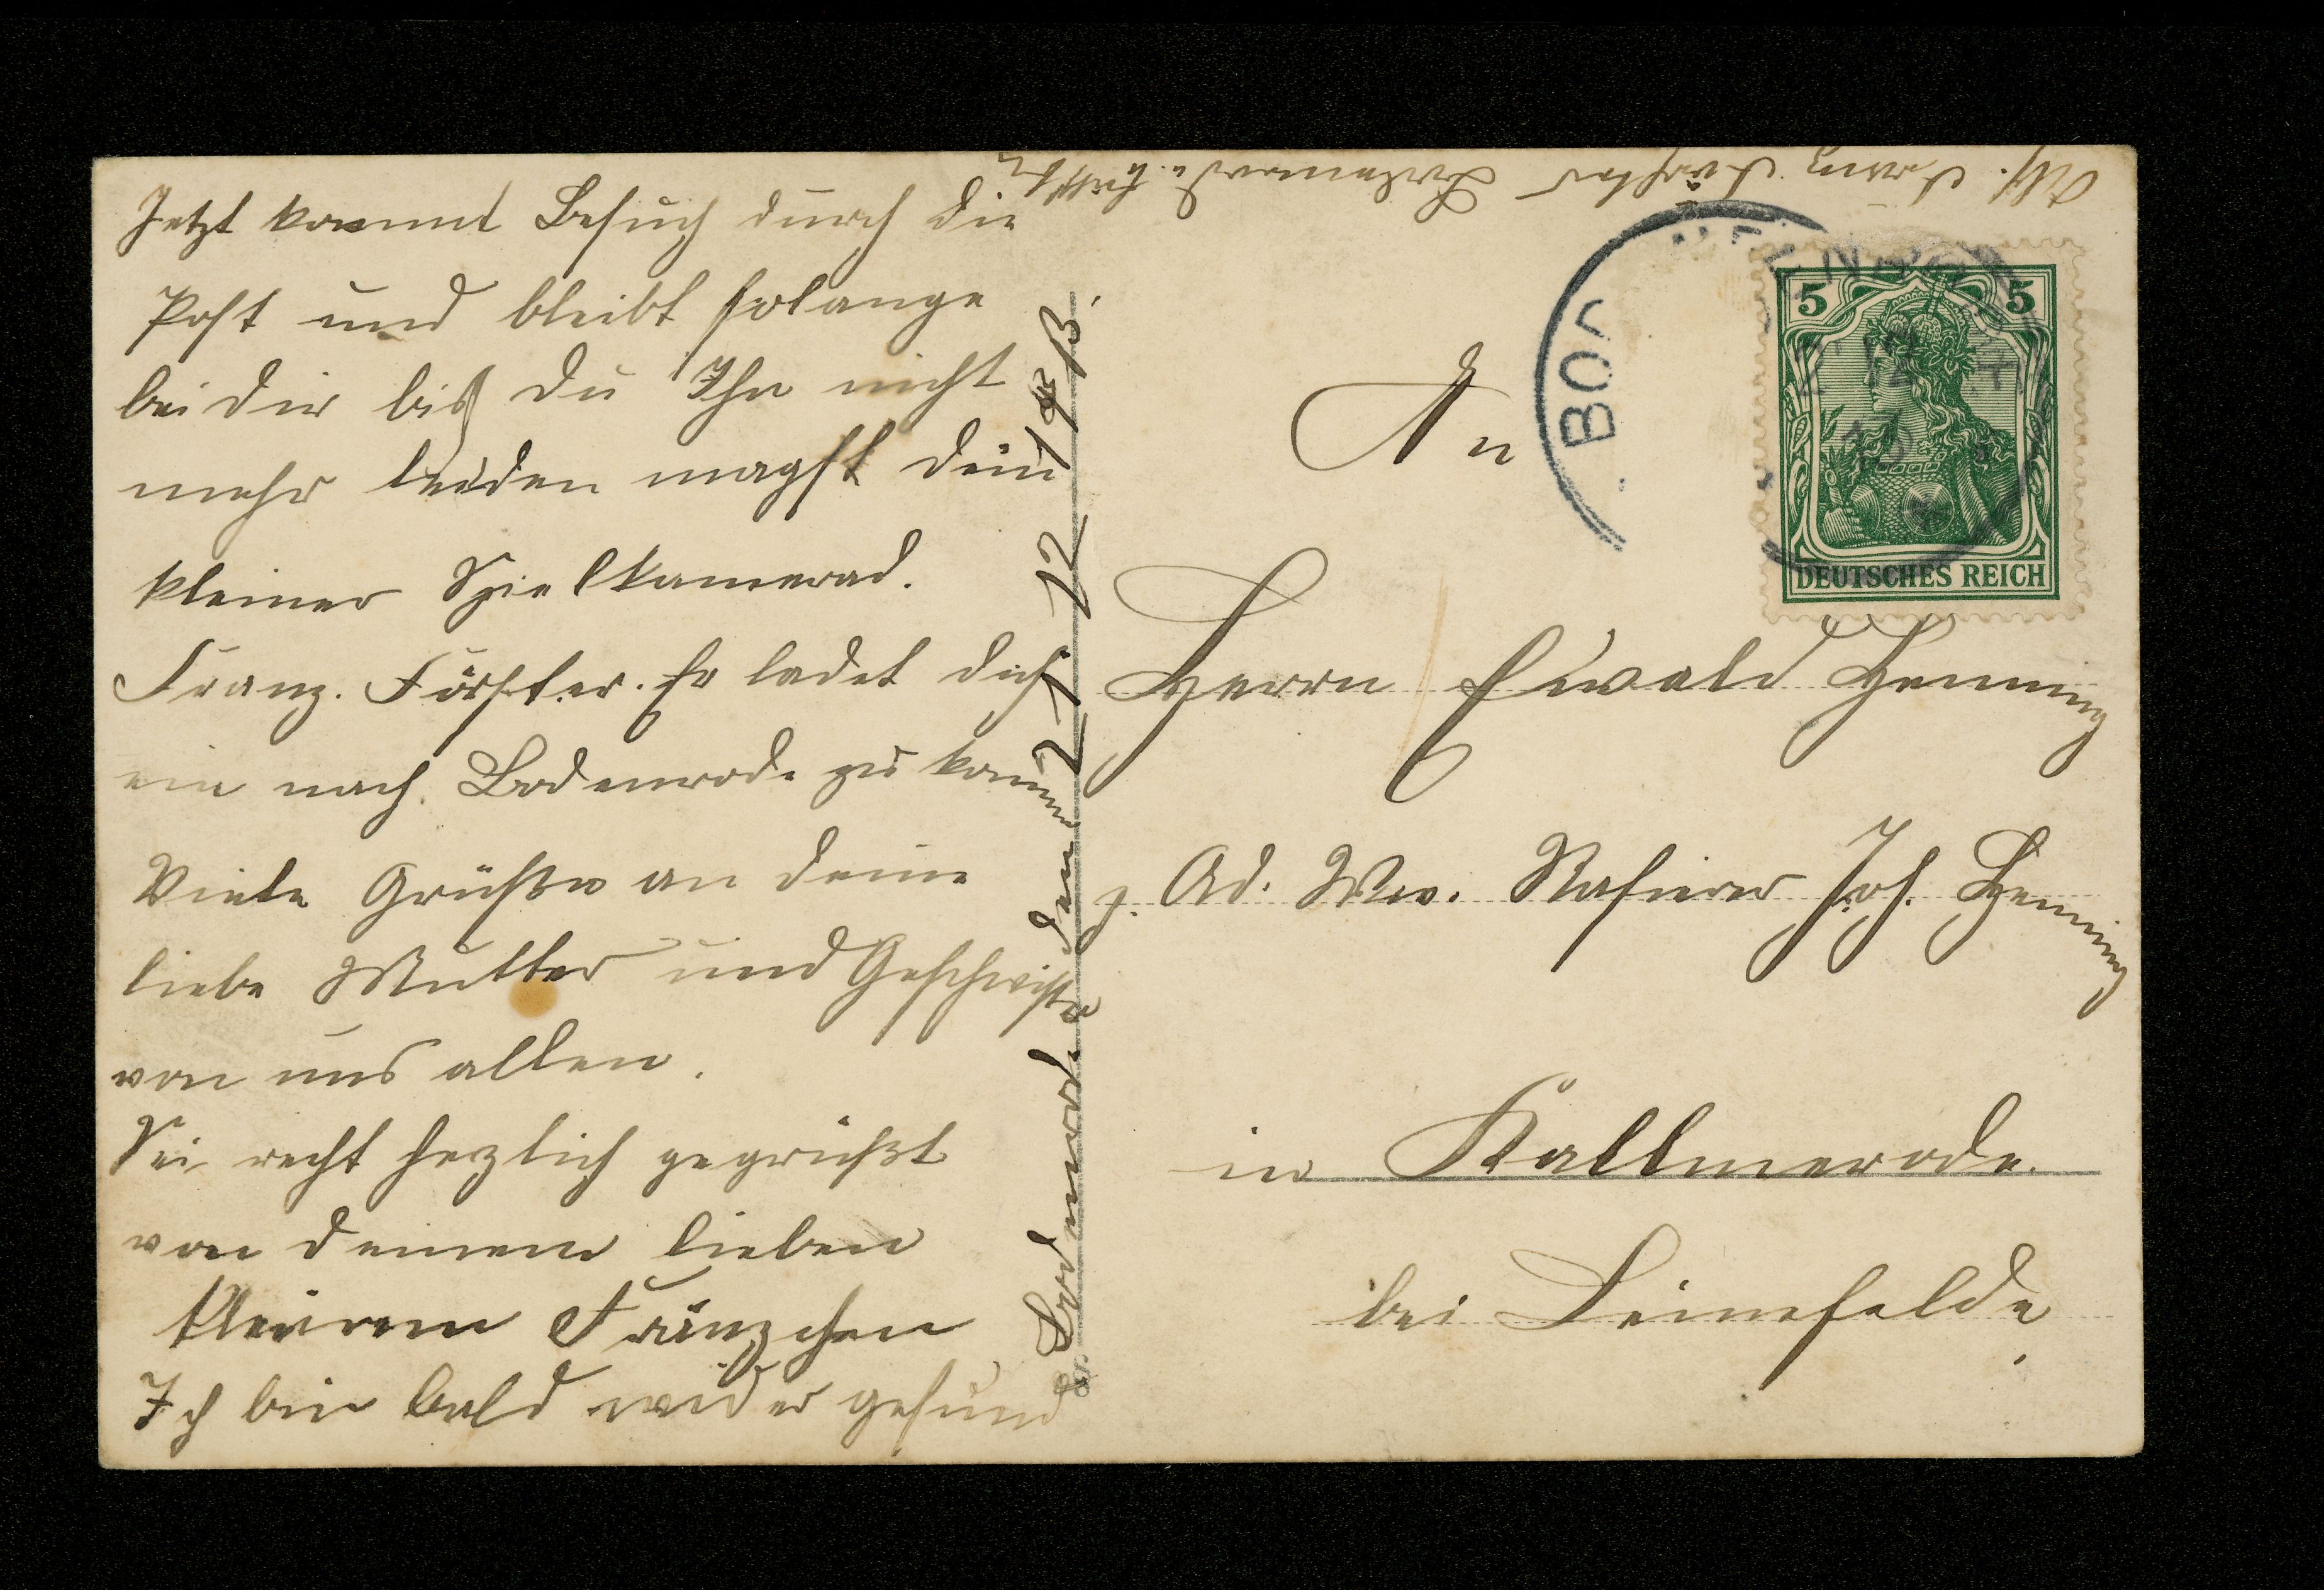 Jetzt kommt Besuch durch die
Post und bleibt solange
bei dir bis du Ihn nicht
mehr leiden magst dein
kleiner Spielkamerad.
Franz. Förster. Er ladet dich
ein nach Bodenrode zu kommen
Viele Grüße an deine
liebe Mutter und Geschwister
von uns allen.
Sei recht herzlich gegrüßt
von deinem lieben
kleinen Fränzchen
Ich bin bald wider gesund
Bodenrode den 21 12 13.
Abs. Franz Förster Bodenrode
An
Herrn Ewald Henning
z. Ad. Ww. Joh. Henning
in Kallmerode.
bei Leinefelde
5 5
DEUTSCHES REICH